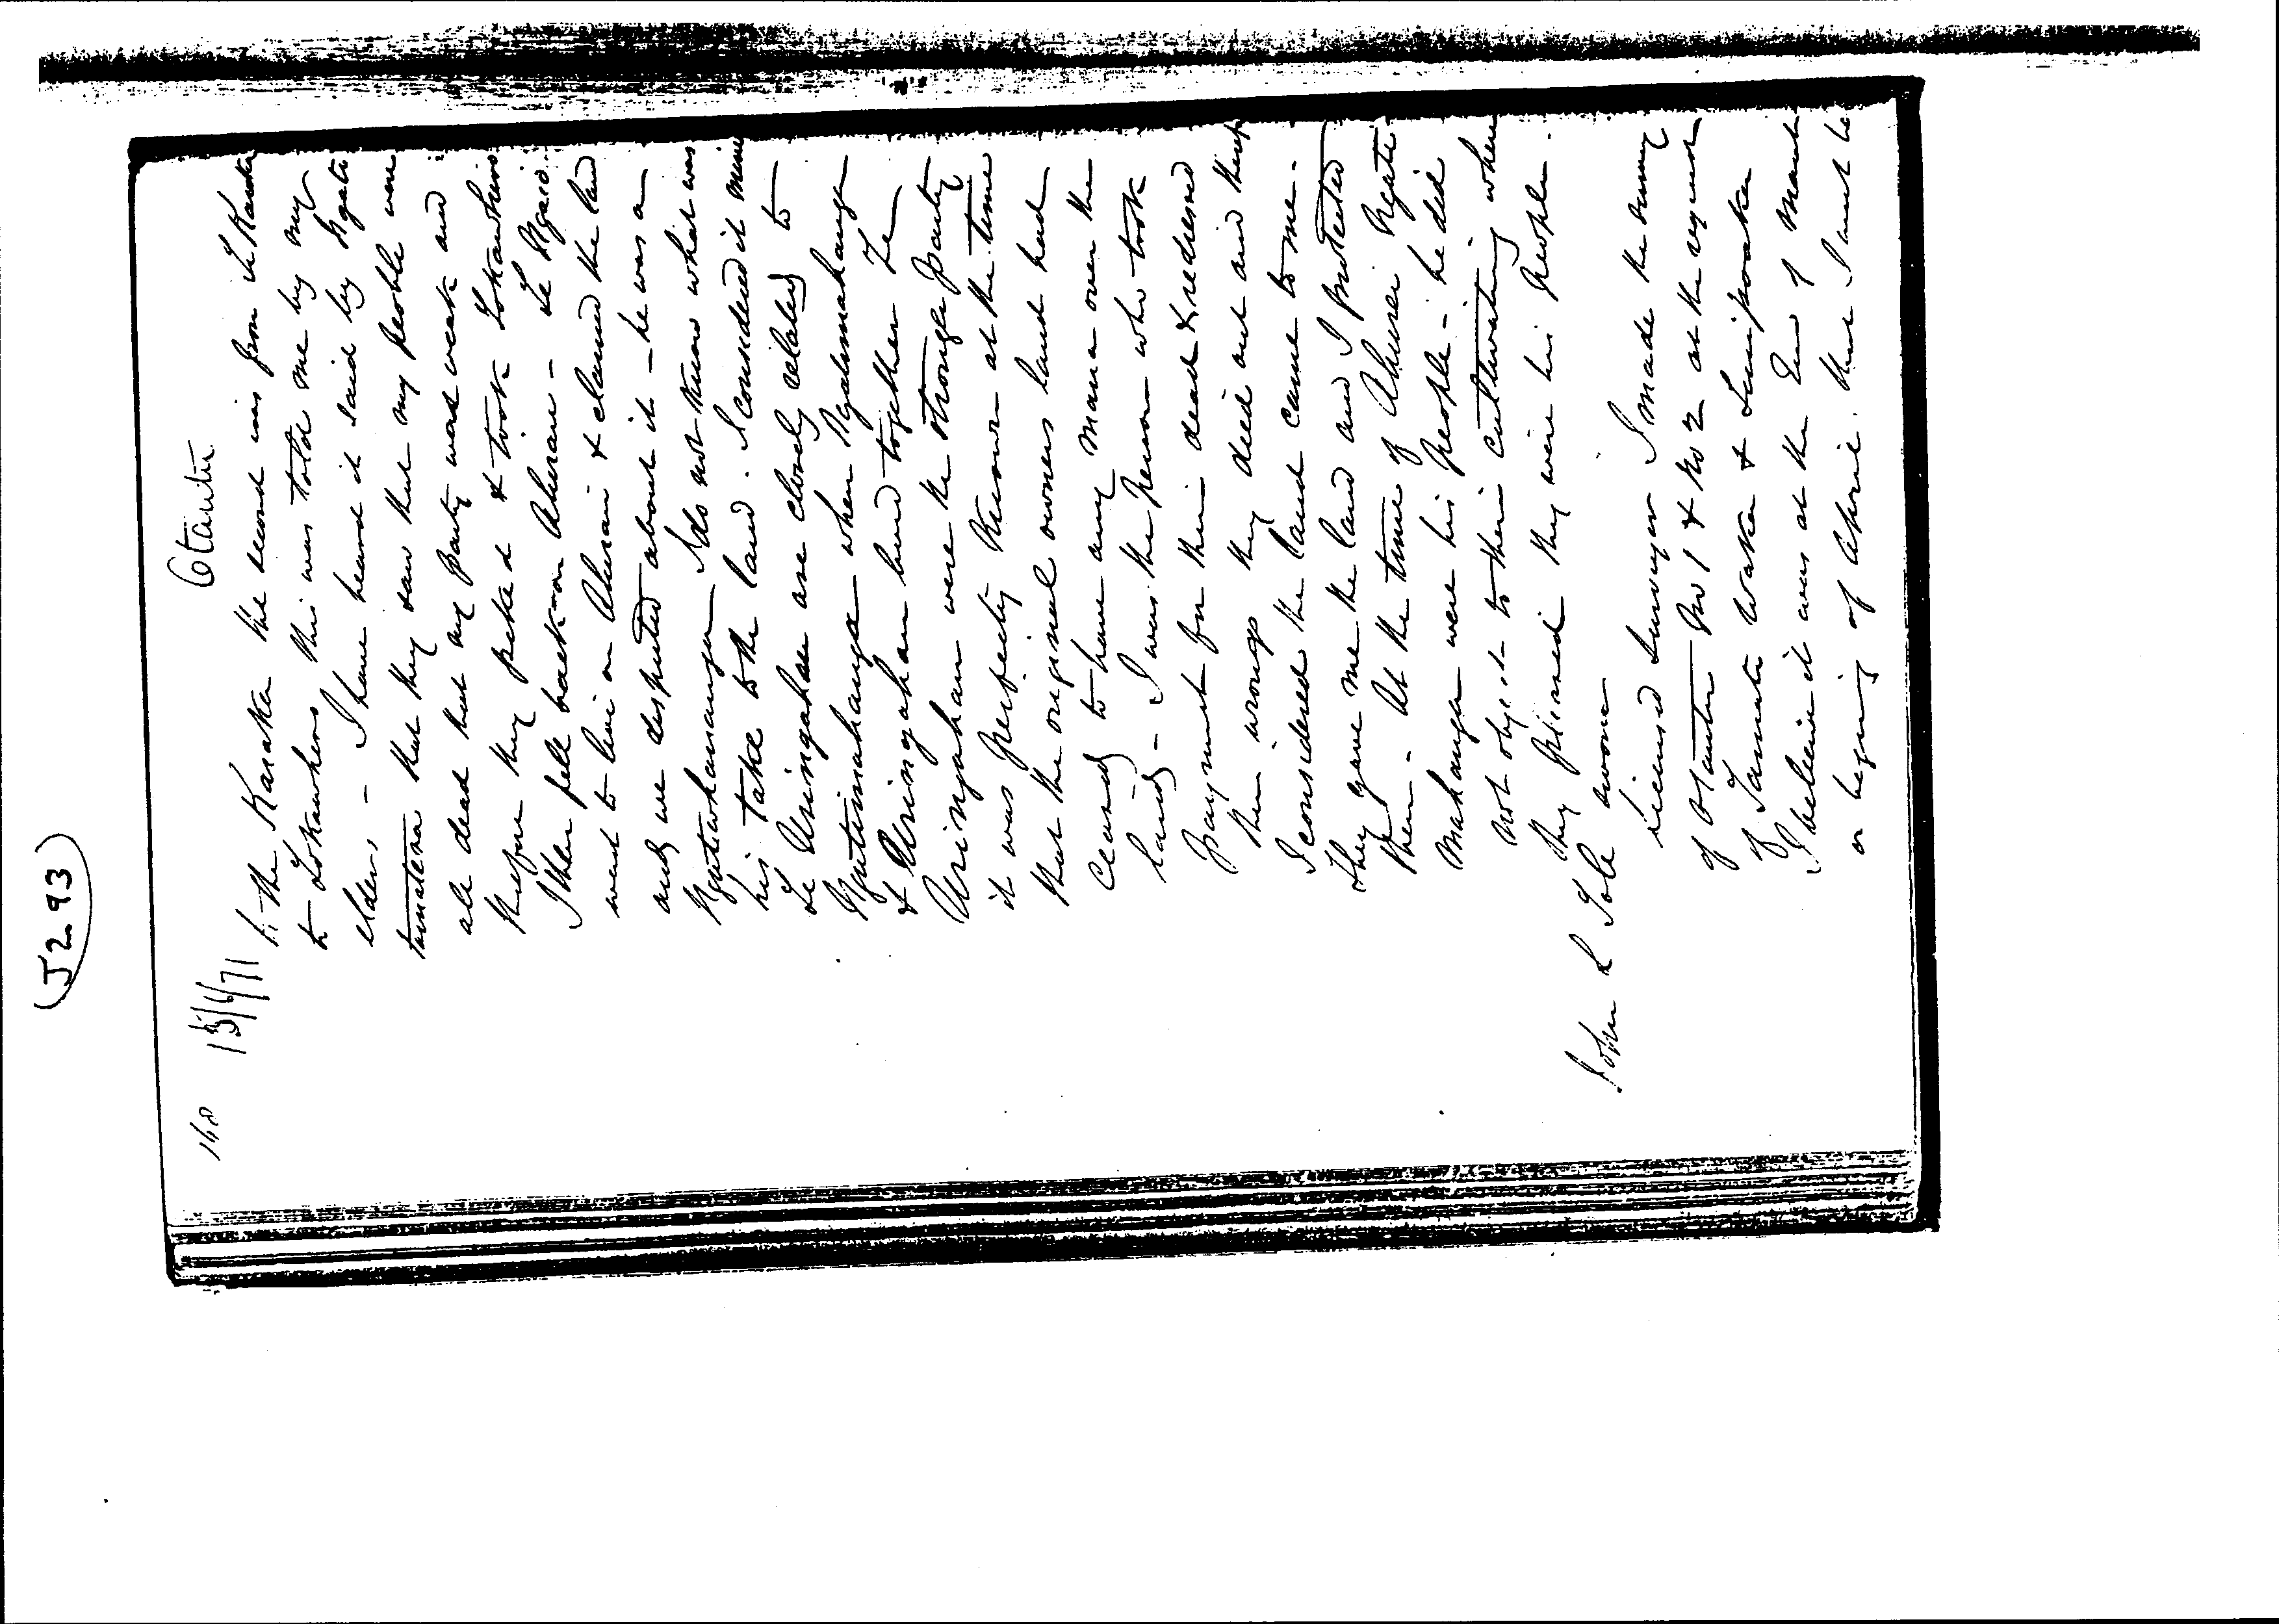 (J293)
168 15/6/71 Otautu
to the Karaka the second was from the Karaka
to Tokawhero this was told me by my
elders – I have heard it said by Ngati
tumatera that they saw that my people were
all dead that my party was weak and
therefore they peked & took Tokawhero
I then fell back on Ahurae – Te Ngaio
went to live on Ahurai & claimed the land
and we disputed about it – he was a
Ngatiwhanaunga I do not know what was
his take to the land. I considered it mine
Te Uringahau are closely related to
Ngatimakanga when Ngatimahanga
& Uringahau lived together Te
Uringahau were the stronger party
it was perfectly known at the time
that the original owners land had
ceased to have any mana over the
land – I was the person who took
payment for their dead & redressed
their wrongs they died out and
I considered the land came to me.
They gave me the land and I protected
them – At the time of Ahurei Ngati
Mahanga were his people – he did
not object to their cultivating when
they pleased they were his people.
John L Tole sworn
licensed Surveyor I made the survey
of Otautu No 1 & No 2 at the request
of Tamati Waka &
I believe it was at the End of March
or begining of April. there I sent to